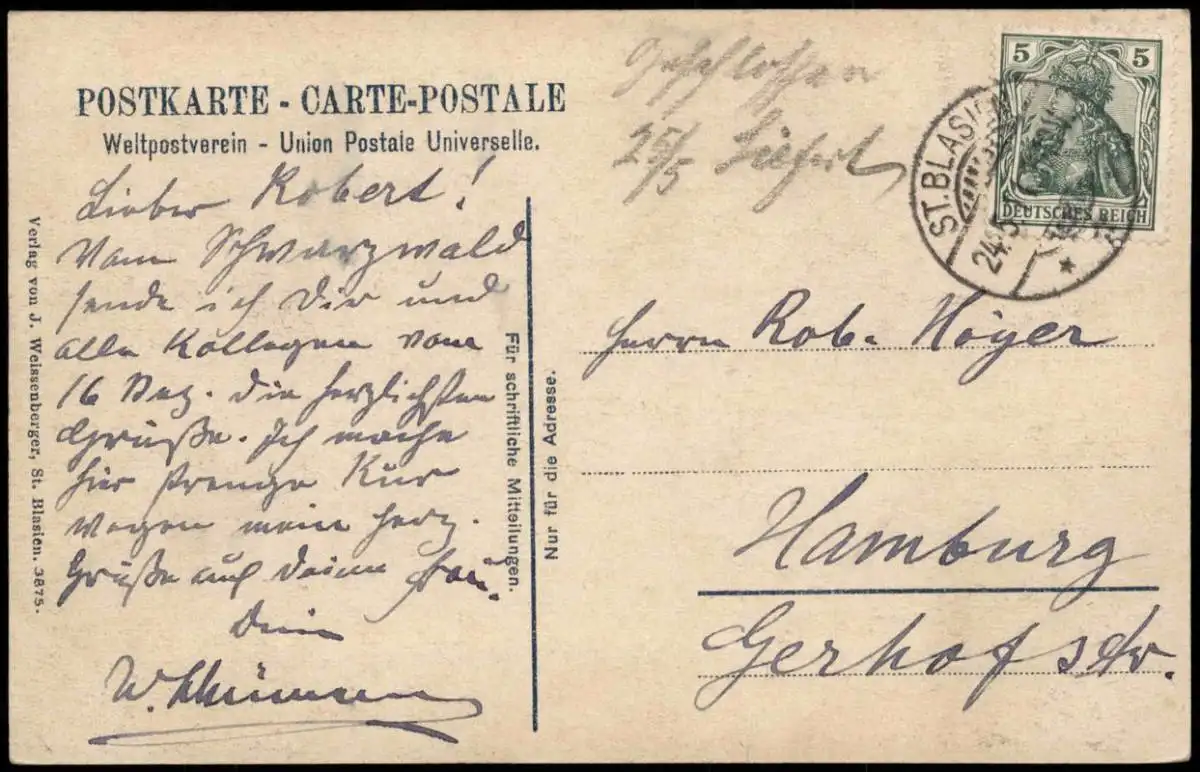 POSTKARTE - CARTE-POSTALE
Weltpostverein - Union Postale Universelle.
Geschlossen
25/5
5 5
DEUTSCHES REICH
ST. BLASIEN
24.5.
Lieber Robert!
Vom Schwarzwald
sende ich Dir und
alle Kollegen vom
16 Bez. die herzlichsten
Grüße. Ich mache
hier strenge Kur
wegen mein Herz.
Grüße auch Deine Frau.
Dein
W.
Verlag von J. Weissenberger, St. Blasien. 3875.
Für schriftliche Mitteilungen.
Nur für die Adresse.
Herrn Rob. Höyer
Hamburg
Gerhofstr.